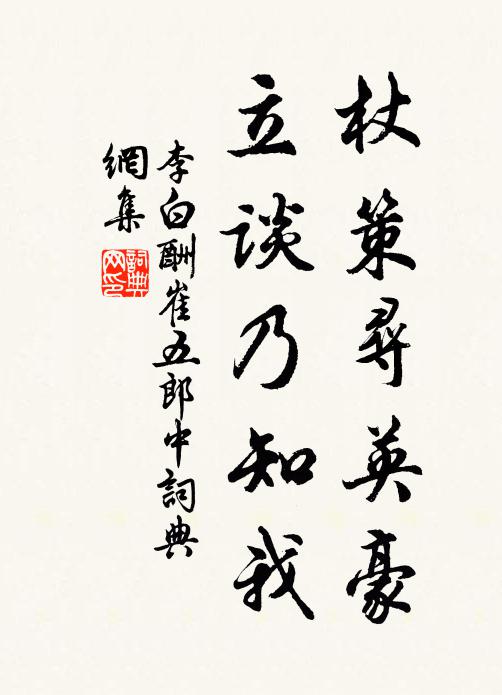 杖策尋英豪
立談乃知我
李白酬崔五郎中詞典
網集
詞典網印